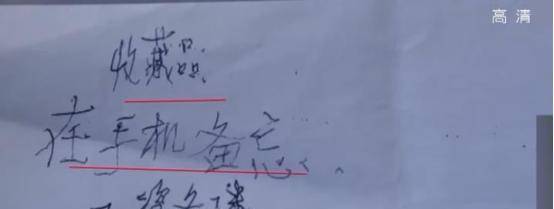 高清
收藏品
在手机备忘